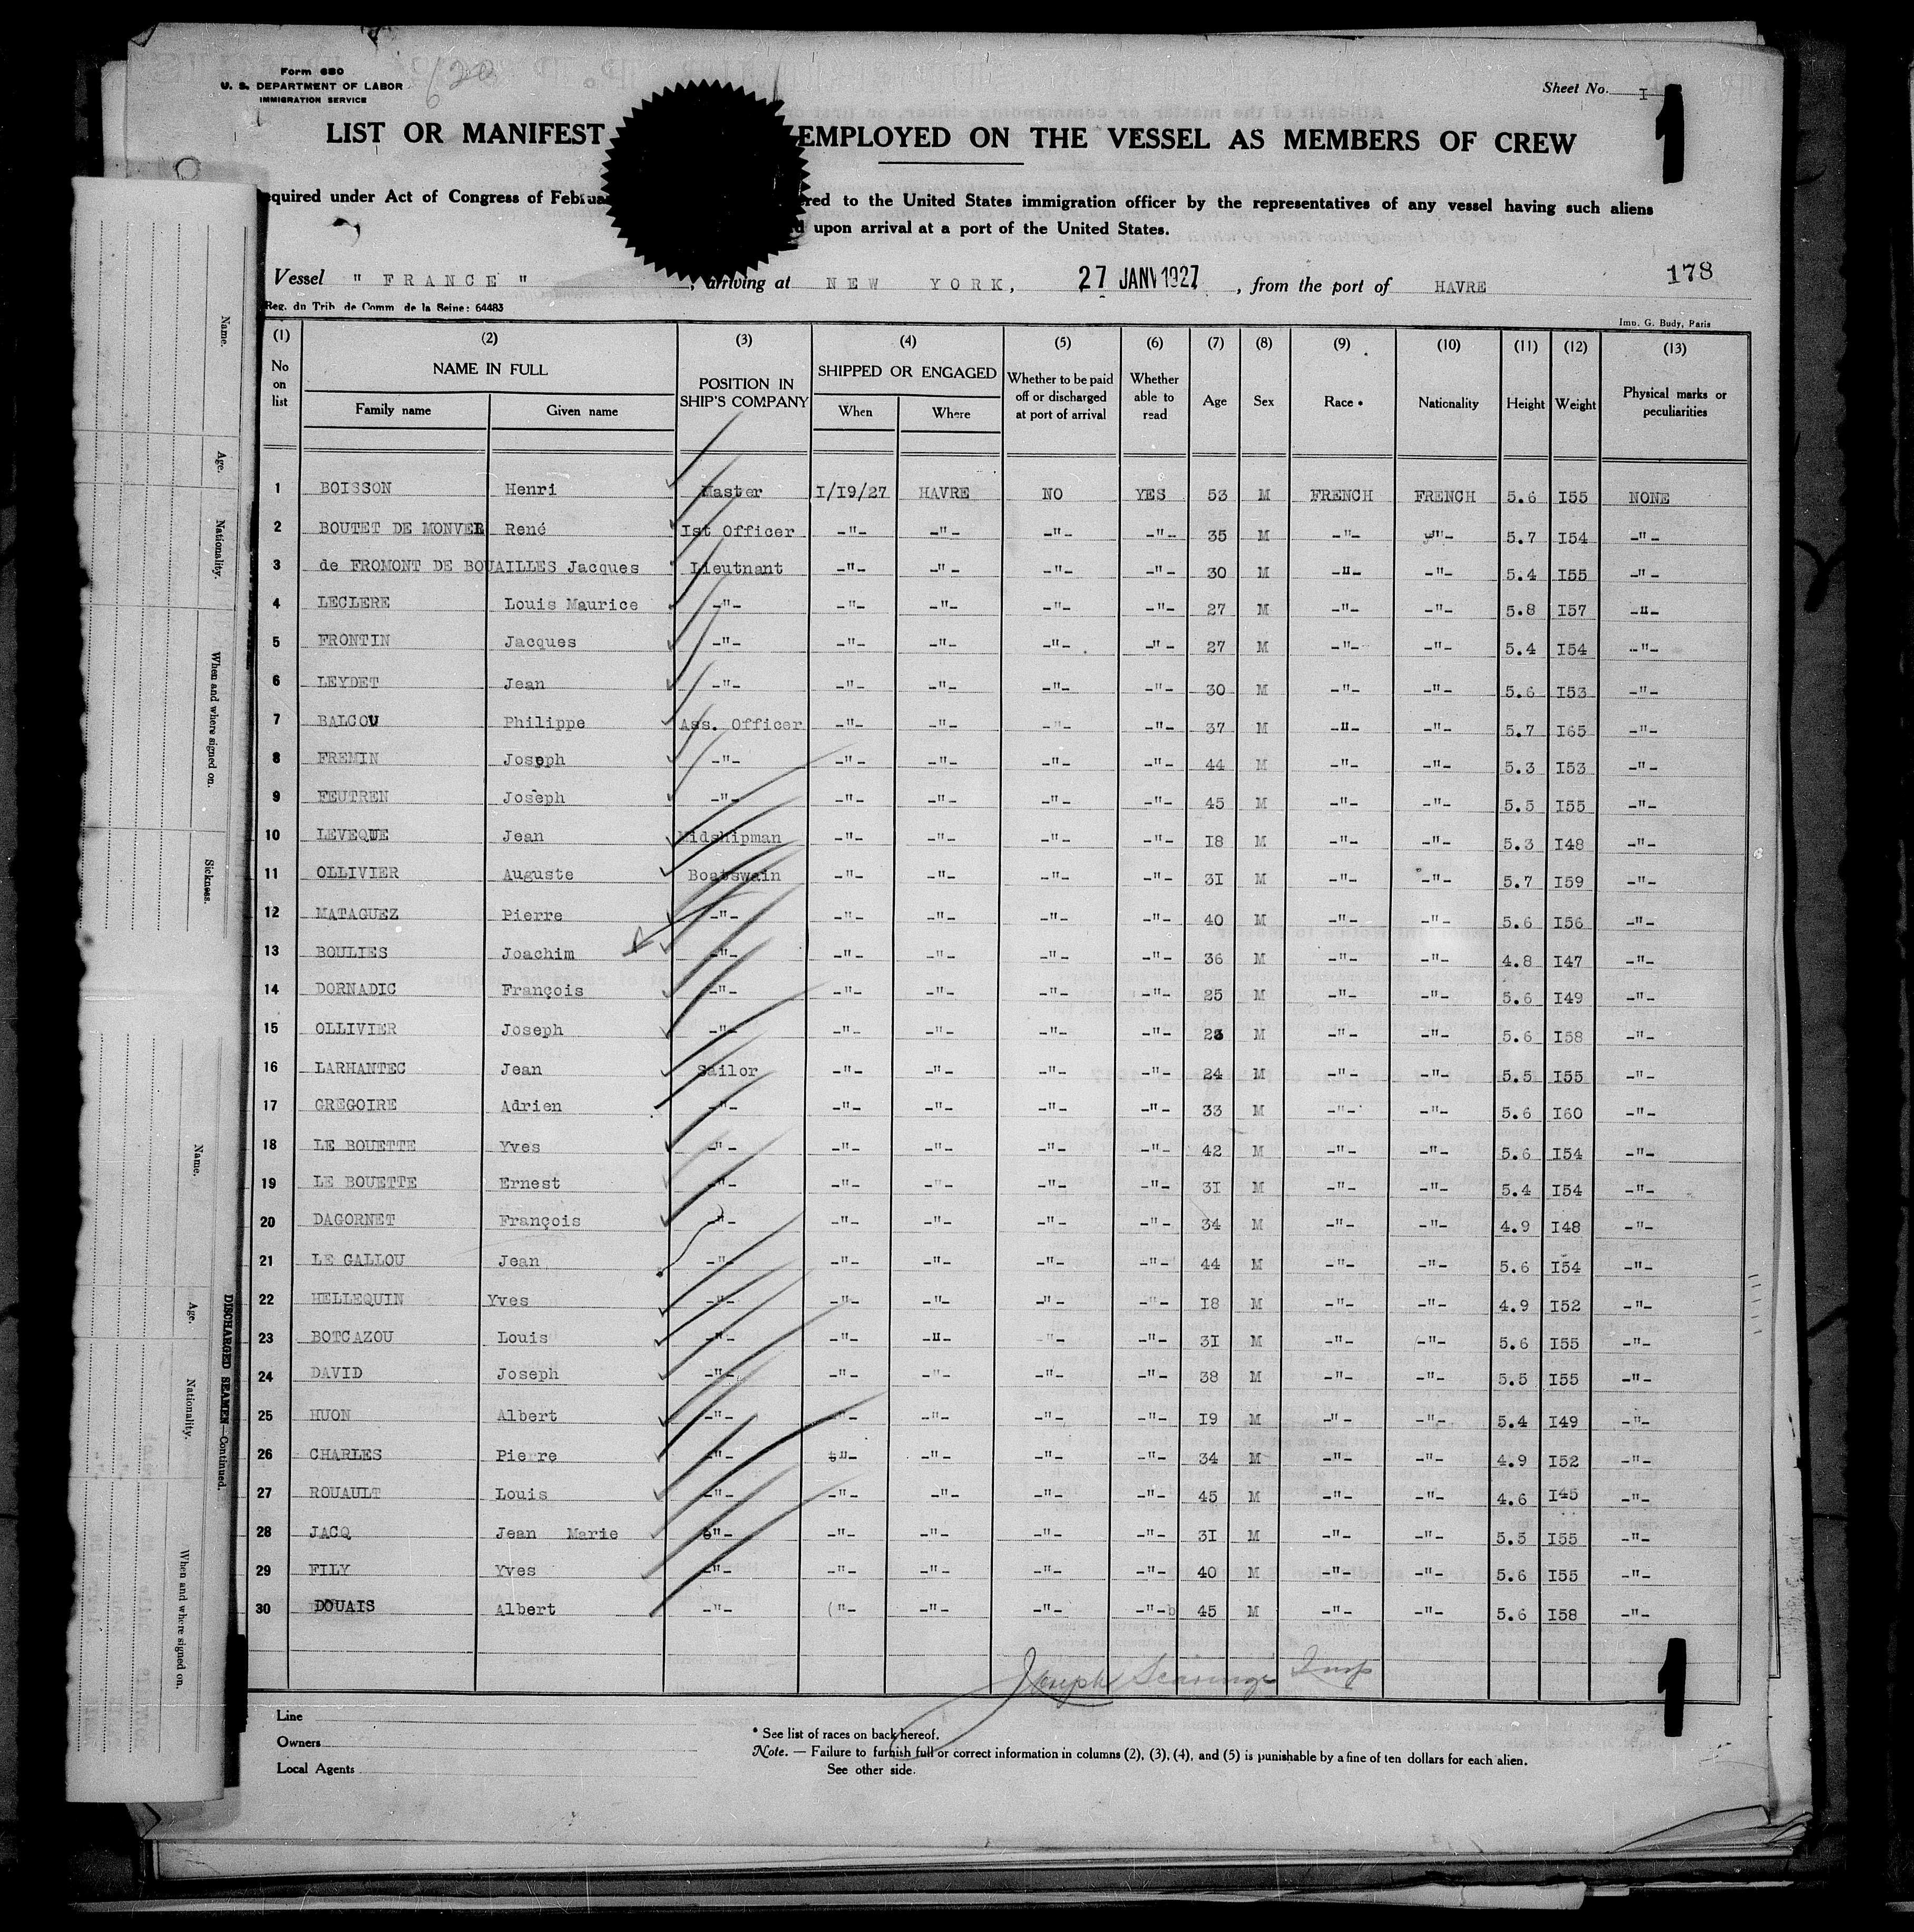 Form 680
U. S. DEPARTMENT OF LABOR
IMMIGRATION SERVICE
Sheet No. I
1
LIST OR MANIFEST EMPLOYED ON THE VESSEL AS MEMBERS OF CREW
equired under Act of Congress of Februa red to the United States immigration officer by the representatives of any vessel having such aliens
upon arrival at a port of the United States.
Vessel " FRANCE " , arriving at NEW YORK, 27 JANV 1927, from the port of HAVRE
178
Reg. du Trib. de Comm. de la Seine: 64483
Imp. G. Budy, Paris
(1) (2) (3) (4) (5) (6) (7) (8) (9) (10) (11) (12) (13)
No on list NAME IN FULL POSITION IN SHIP'S COMPANY SHIPPED OR ENGAGED Whether to be paid off or discharged at port of arrival Whether able to read Age Sex Race * Nationality Height Weight Physical marks or peculiarities
Family name Given name When Where
1 BOISSON Henri Master I/19/27 HAVRE NO YES 53 M FRENCH FRENCH 5.6 I55 NONE
2 BOUTET DE MONVEL René Ist Officer -"- -"- -"- -"- 35 M -"- -"- 5.7 I54 -"-
3 de FROMONT DE BOUAILLES Jacques Lieutnant -"- -"- -"- -"- 30 M -"- -"- 5.4 I55 -"-
4 LECLERE Louis Maurice -"- -"- -"- -"- -"- 27 M -"- -"- 5.8 I57 -"-
5 FRONTIN Jacques -"- -"- -"- -"- -"- 27 M -"- -"- 5.4 I54 -"-
6 LEYDET Jean -"- -"- -"- -"- -"- 30 M -"- -"- 5.6 I53 -"-
7 BALCOU Philippe Ass. Officer -"- -"- -"- -"- 37 M -"- -"- 5.7 I65 -"-
8 FREMIN Joseph -"- -"- -"- -"- -"- 44 M -"- -"- 5.3 I53 -"-
9 FEUTREN Joseph -"- -"- -"- -"- -"- 45 M -"- -"- 5.5 I55 -"-
10 LEVEQUE Jean Midshipman -"- -"- -"- -"- I8 M -"- -"- 5.3 I48 -"-
11 OLLIVIER Auguste Boatswain -"- -"- -"- -"- 3I M -"- -"- 5.7 I59 -"-
12 MATAGUEZ Pierre -"- -"- -"- -"- -"- 40 M -"- -"- 5.6 I56 -"-
13 BOULIES Joachim -"- -"- -"- -"- -"- 36 M -"- -"- 4.8 I47 -"-
14 DORNADIC François -"- -"- -"- -"- -"- 25 M -"- -"- 5.6 I49 -"-
15 OLLIVIER Joseph -"- -"- -"- -"- -"- M -"- -"- 5.6 I58 -"-
16 LARHANTEC Jean Sailor -"- -"- -"- -"- 24 M -"- -"- 5.5 I55 -"-
17 GREGOIRE Adrien -"- -"- -"- -"- -"- 33 M -"- -"- 5.6 I60 -"-
18 LE BOUETTE Yves -"- -"- -"- -"- -"- 42 M -"- -"- 5.6 I54 -"-
19 LE BOUETTE Ernest -"- -"- -"- -"- -"- 3I M -"- -"- 5.4 I54 -"-
20 DAGORNET François -"- -"- -"- -"- -"- 34 M -"- -"- 4.9 I48 -"-
21 LE GALLOU Jean -"- -"- -"- -"- -"- 44 M -"- -"- 5.6 I54 -"-
22 HELLEQUIN Yves -"- -"- -"- -"- -"- I8 M -"- -"- 4.9 I52 -"-
23 BOTCAZOU Louis -"- -"- -"- -"- -"- 3I M -"- -"- 5.6 I55 -"-
24 DAVID Joseph -"- -"- -"- -"- -"- 38 M -"- -"- 5.5 I55 -"-
25 HUON Albert -"- -"- -"- -"- -"- I9 M -"- -"- 5.4 I49 -"-
26 CHARLES Pierre -"- -"- -"- -"- -"- 34 M -"- -"- 4.9 I52 -"-
27 ROUAULT Louis -"- -"- -"- -"- -"- 45 M -"- -"- 4.6 I45 -"-
28 JACQ Jean Marie -"- -"- -"- -"- -"- 3I M -"- -"- 5.5 I55 -"-
29 FILY Yves -"- -"- -"- -"- -"- 40 M -"- -"- 5.6 I55 -"-
30 DOUAIS Albert -"- -"- -"- -"- -"- 45 M -"- -"- 5.6 I58 -"-
Joseph Insp
1
Line
Owners
Local Agents
* See list of races on back hereof.
Note. — Failure to furnish full or correct information in columns (2), (3), (4), and (5) is punishable by a fine of ten dollars for each alien.
See other side.
Name. Age. Nationality. When and where signed on. Sickness.
DISCHARGED SEAMEN—Continued.
Name. Age. Nationality. When and where signed on.